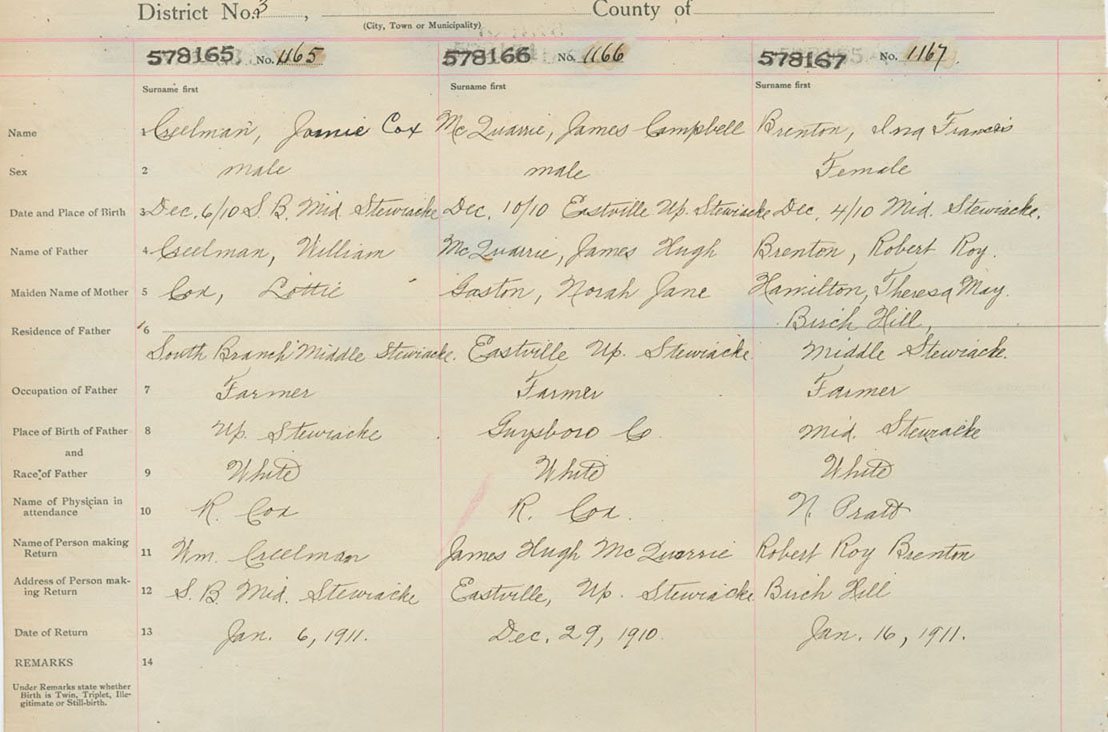 District No. 3 , County of
(City, Town or Municipality)
578165 No. 1165 578166 No. 1166 578167 No. 1167
Surname first Surname first Surname first
Name 1 Creelman, Jamie Cox McQuarrie, James Campbell Brenton, Ina Francis
Sex 2 male male Female
Date and Place of Birth 3 Dec. 6/10 S. B. Mid. Stewiacke Dec. 10/10 Eastville Up. Stewiacke Dec. 4/10 Mid. Stewiacke.
Name of Father 4 Creelman, William McQuarrie, James Hugh Brenton, Robert Roy.
Maiden Name of Mother 5 Cox, Lottie Gaston, Norah Jane Hamilton, Theresa May.
Residence of Father 6 Birch Hill,
South Branch Middle Stewiacke. Eastville Up. Stewiacke Middle Stewiacke.
Occupation of Father 7 Farmer Farmer Farmer
Place of Birth of Father 8 Up. Stewiacke Guysboro Co. Mid. Stewiacke
and
Race of Father 9 White White White
Name of Physician in
attendance 10 R. Cox R. Cox. N. Pratt
Name of Person making
Return 11 Wm. Creelman James Hugh McQuarrie Robert Roy Brenton
Address of Person mak-
ing Return 12 S. B. Mid. Stewiacke Eastville, Up. Stewiacke Birch Hill
Date of Return 13 Jan. 6, 1911. Dec. 29, 1910. Jan. 16, 1911.
REMARKS 14
Under Remarks state whether
Birth is Twin, Triplet, Ille-
gitimate or Still-birth.